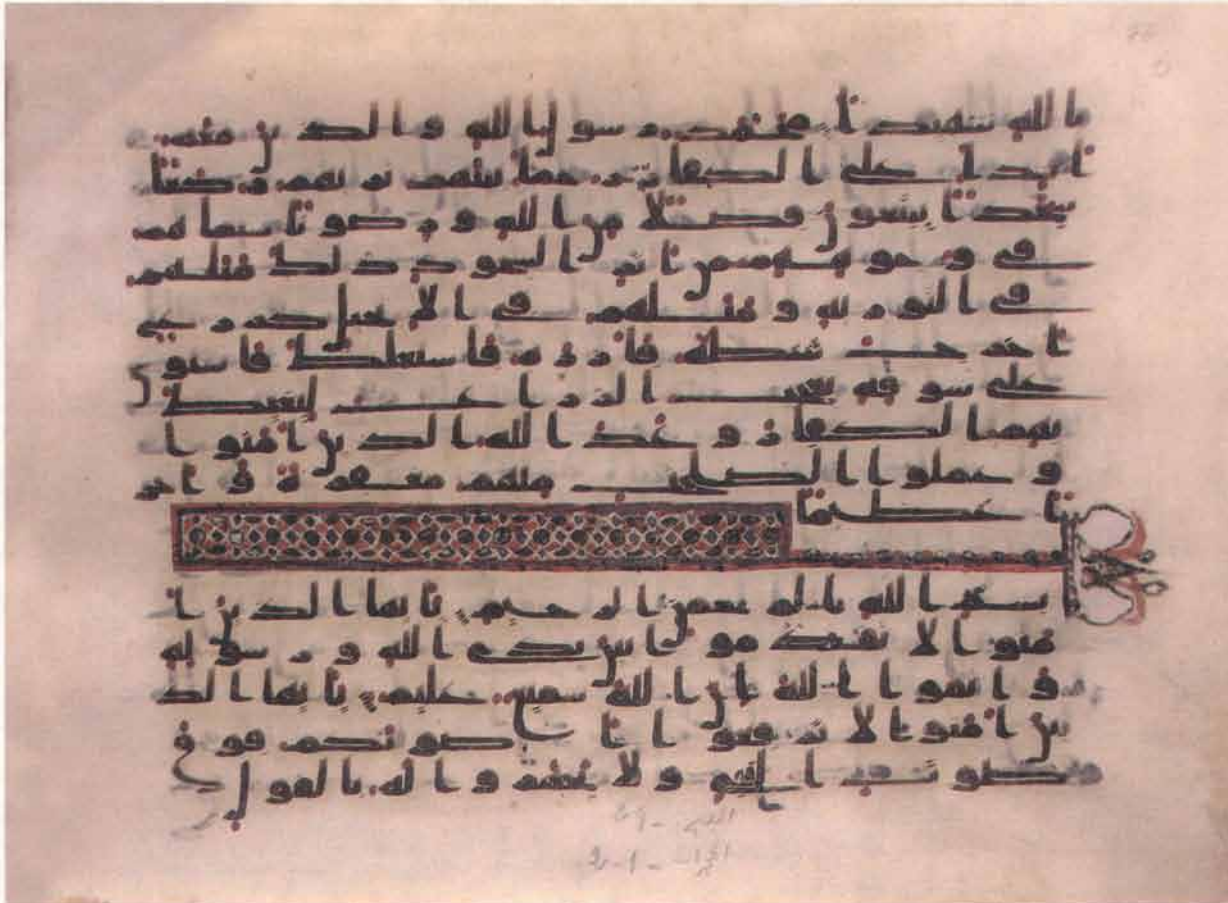 بالله شهيدا محمد رسول الله والذين معه
اشدا على الكفار رحما بينهم تريهم ركعا
سجدا يبتغون فضلا من الله ورضونا سيماهم
في وجوههم من اثر السجود ذلك مثلهم
في التوريه ومثلهم في الانجيل كزرع
اخرج شطئه فازره فاستغلظ فاستوى
على سوقه يعجب الزراع ليغيظ
بهم الكفار وعد الله الذين امنوا
وعملوا الصلحت منهم مغفرة واجر
ا عظيما
بسم الله الرحمن الرحيم يايها الذين ا
منوا لا تقدموا بين يدي الله ورسوله
واتقوا الله ان الله سميع عليم يايها الذ
ين امنوا لا ترفعوا اصوتكم فوق
صوت النبي ولا تجهروا له بالقول
الفتح - ٢٩
الحجرات - ١ - ٢